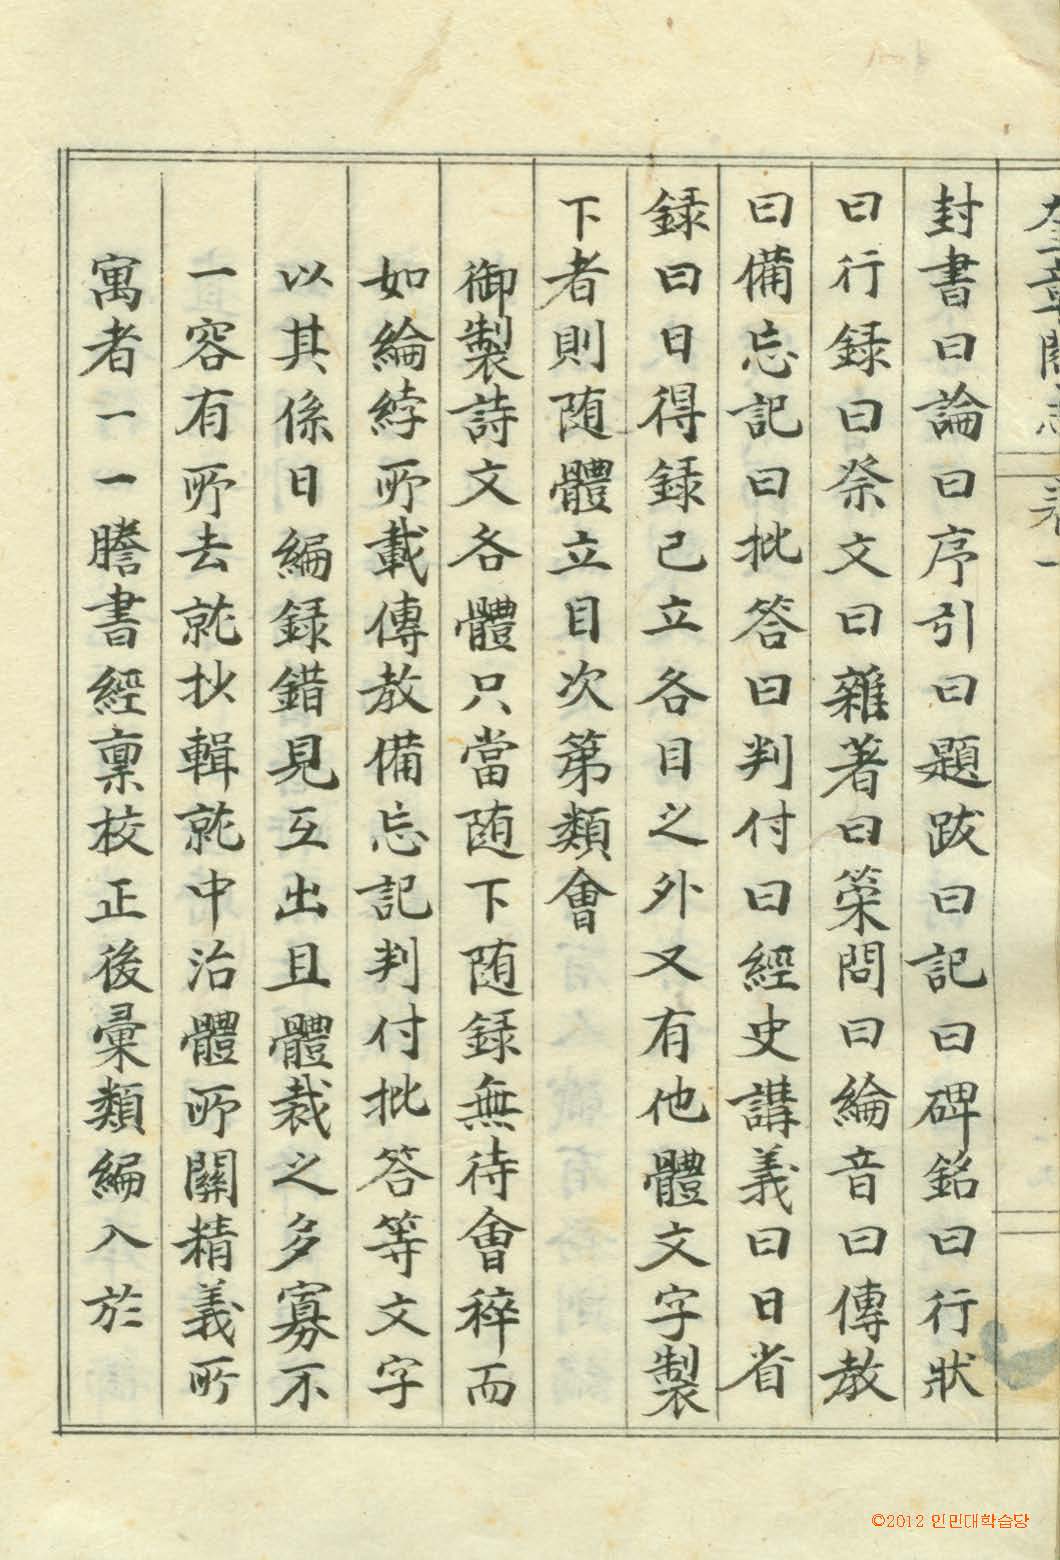 奎章閣志 卷一
封書曰論曰序引曰題跋曰記曰碑銘曰行狀
曰行録曰祭文曰雜著曰策問曰綸音曰傳敎
曰備忘記曰批答曰判付曰經史講義曰日省
録曰日得録已立各目之外又有他體文字製
下者則随體立目次第類會
御製詩文各體只當随下随録無待會稡而
如綸綍所載傳敎備忘記判付批答等文字
以其係日編録錯見互出且體裁之多寡不
一容有所去就抄輯就中治體所關精義所
寓者一一謄書經稟校正後彙類編入於
©2012 인민대학습당